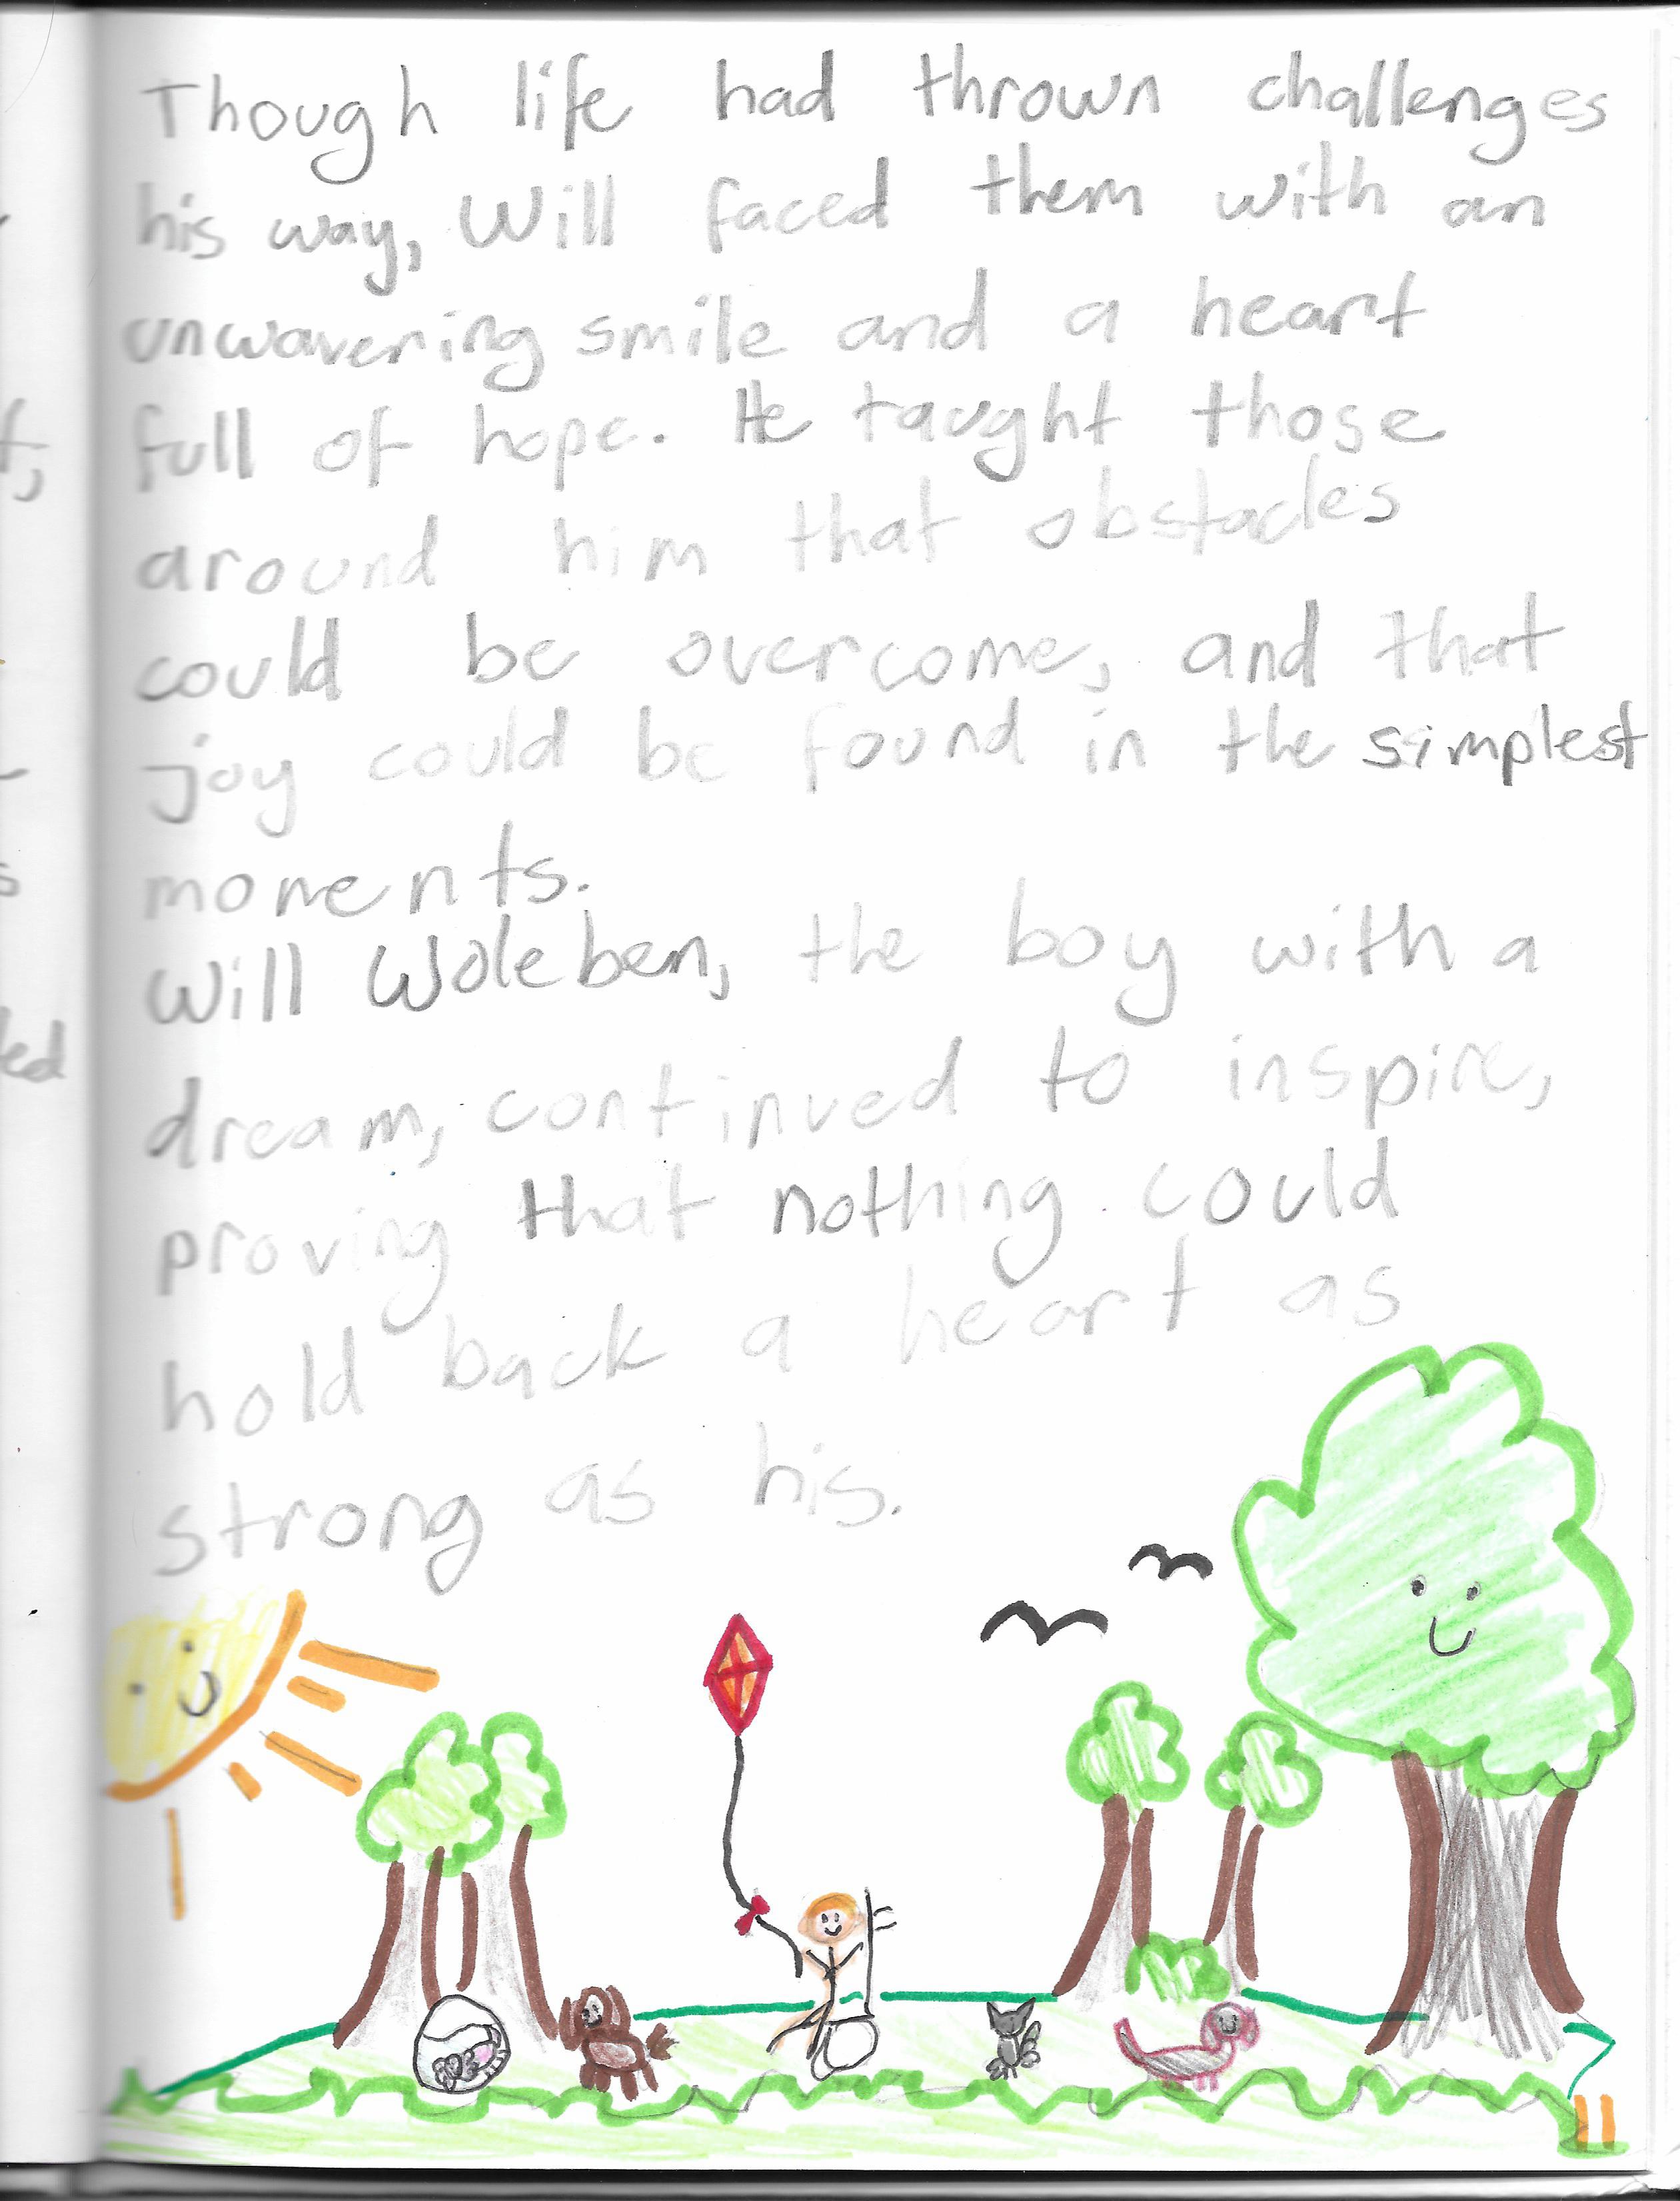 Though life had thrown challenges
his way, Will faced them with an
unwavering smile and a heart
full of hope. He taught those
around him that obstacles
could be overcome, and that
joy could be found in the simplest
moments.
Will Woleben, the boy with a
dream, continued to inspire,
proving that nothing could
hold back a heart as
strong as his.